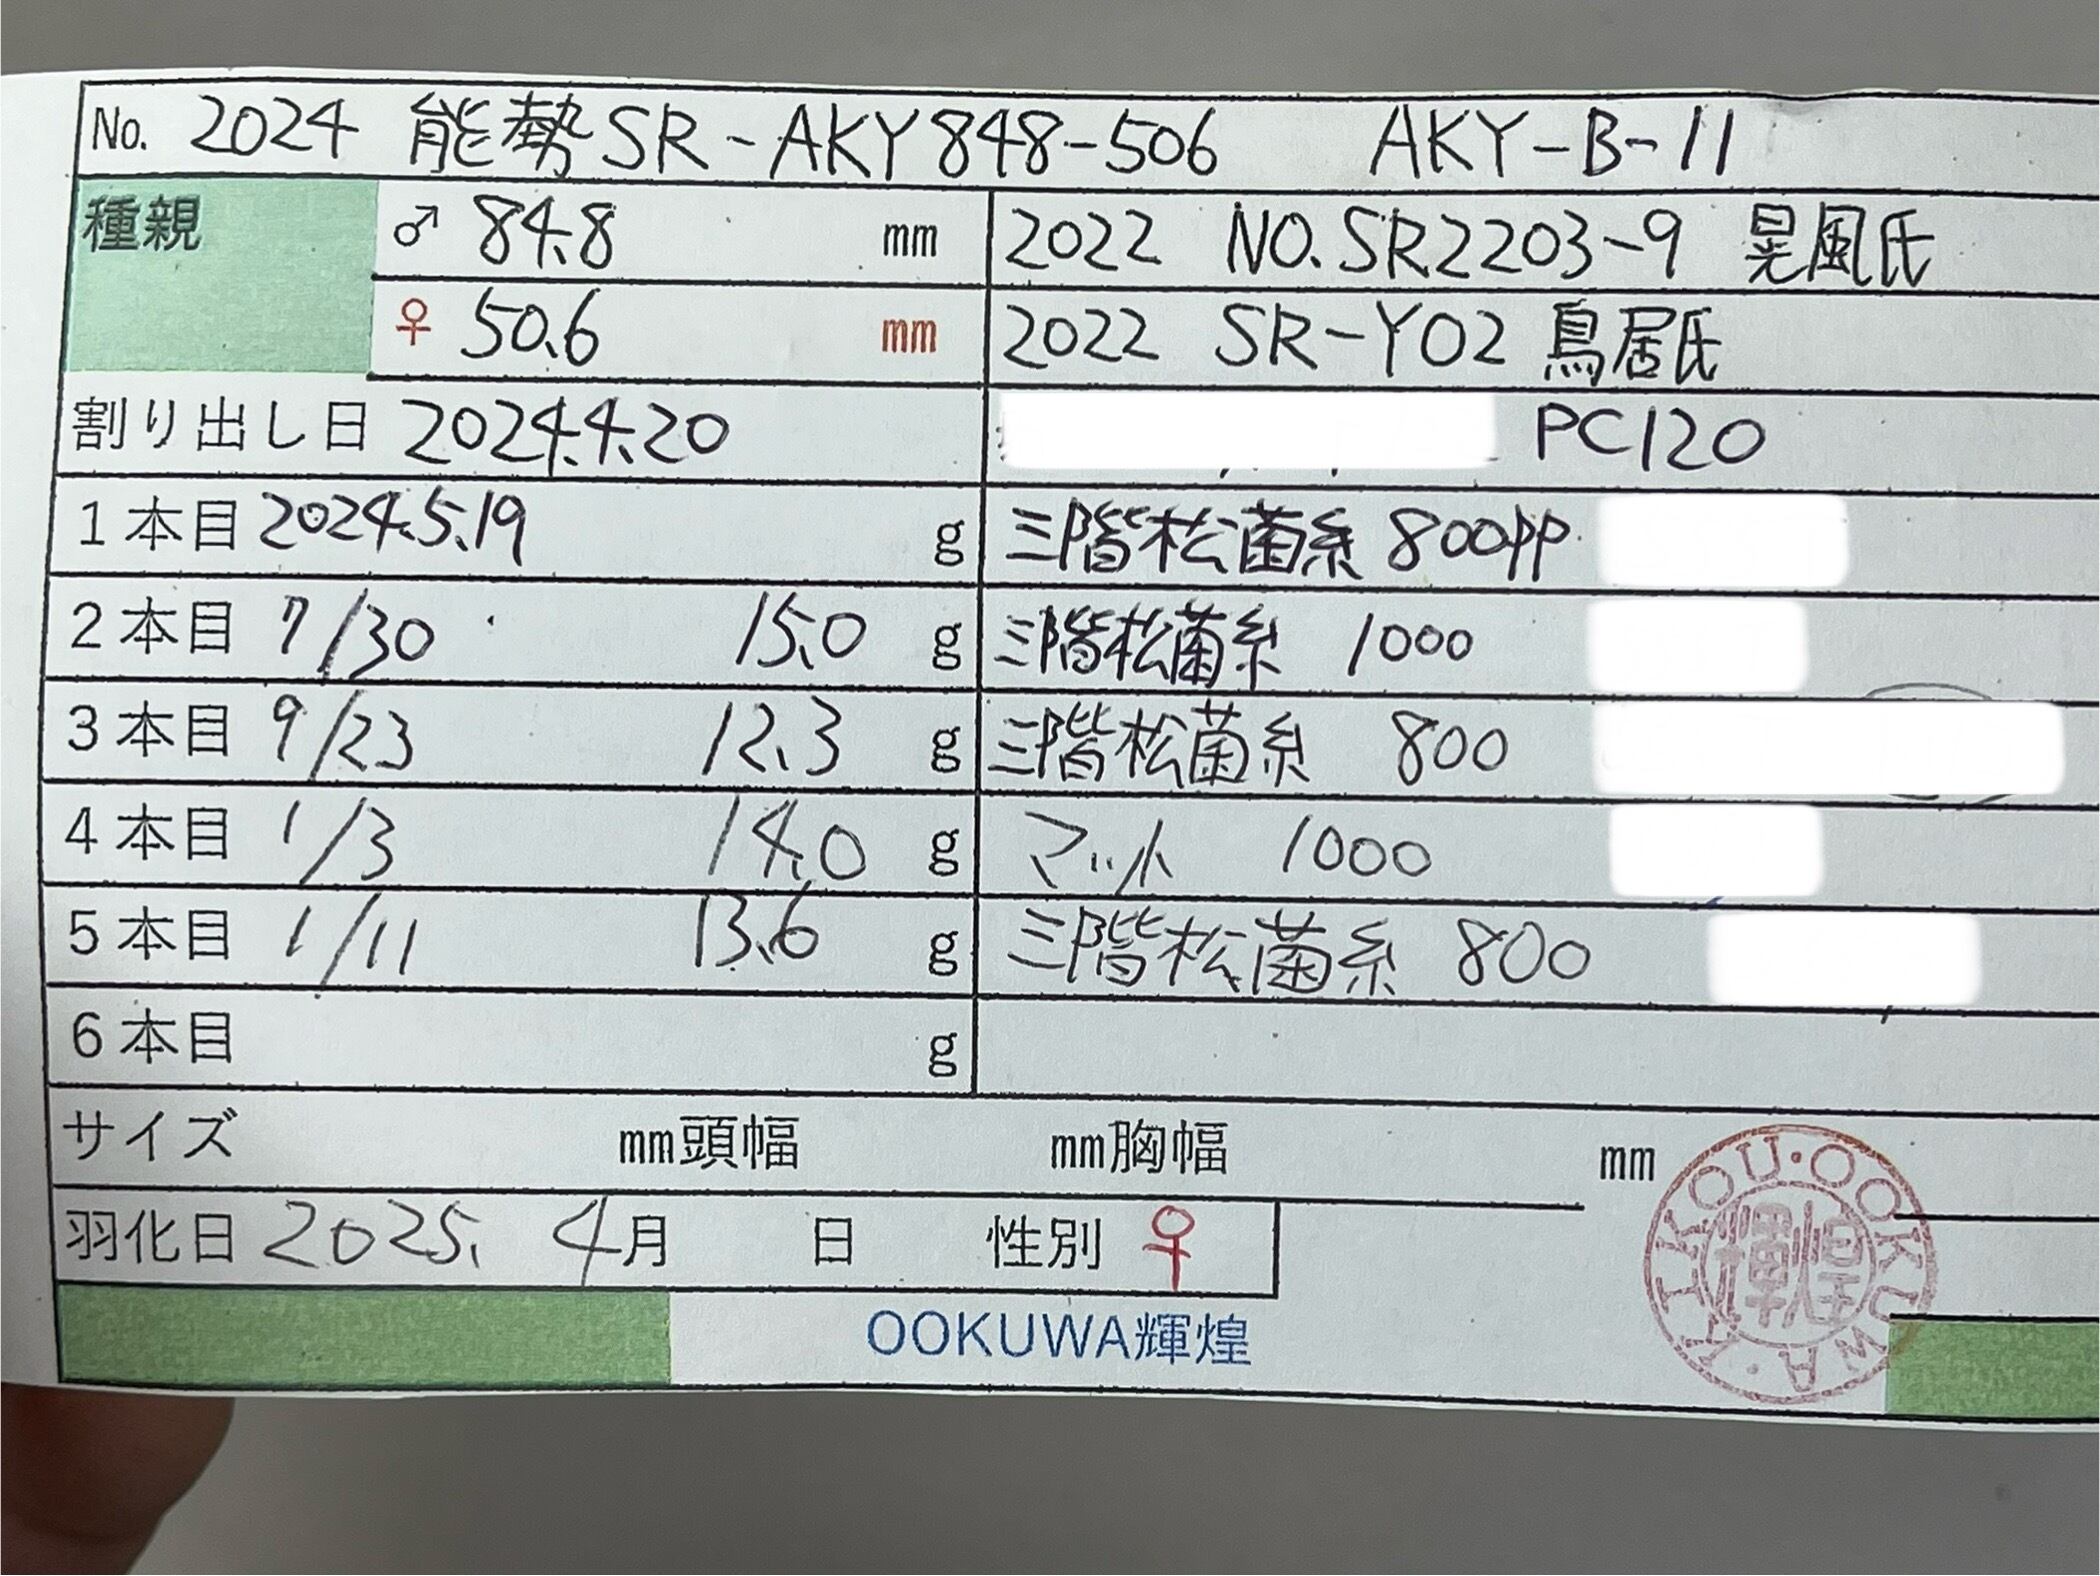 No. 2024 能勢SR-AKY848-506 AKY-B-11
種親 ♂ 84.8 mm 2022 NO.SR2203-9 晃風氏
♀ 50.6 mm 2022 SR-Y02 鳥居氏
割り出し日 2024.4.20 PC120
1本目 2024.5.19 g 三階松菌糸 800PP
2本目 7/30 15.0 g 三階松菌糸 1000
3本目 9/23 12.3 g 三階松菌糸 800
4本目 1/3 14.0 g マット 1000
5本目 1/11 13.6 g 三階松菌糸 800
6本目 g
サイズ mm頭幅 mm胸幅 mm
羽化日 2025. 4月 日 性別 ♀
OOKUWA輝煌
KIKOU・OOKUWA・
輝煌